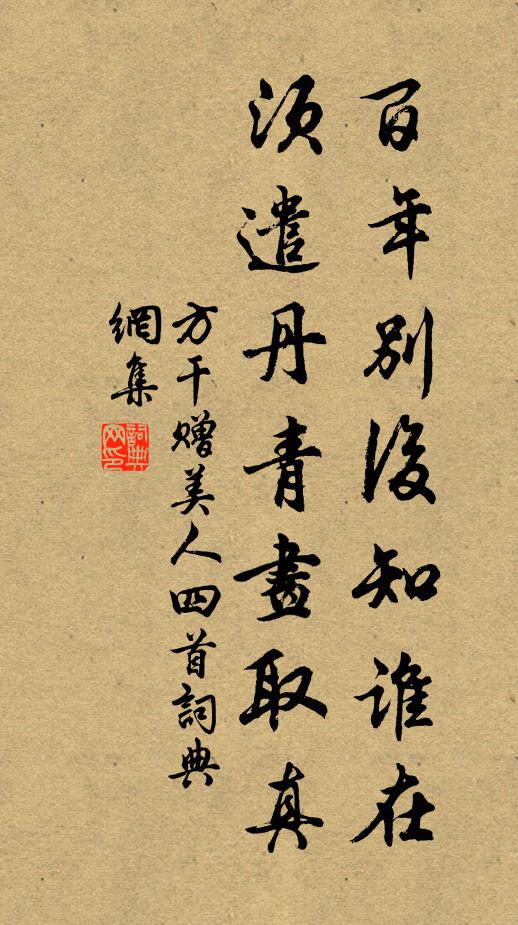 百年別後知誰在
須遣丹青畫取真
方干贈美人四首詞典
網集
詞典
网印